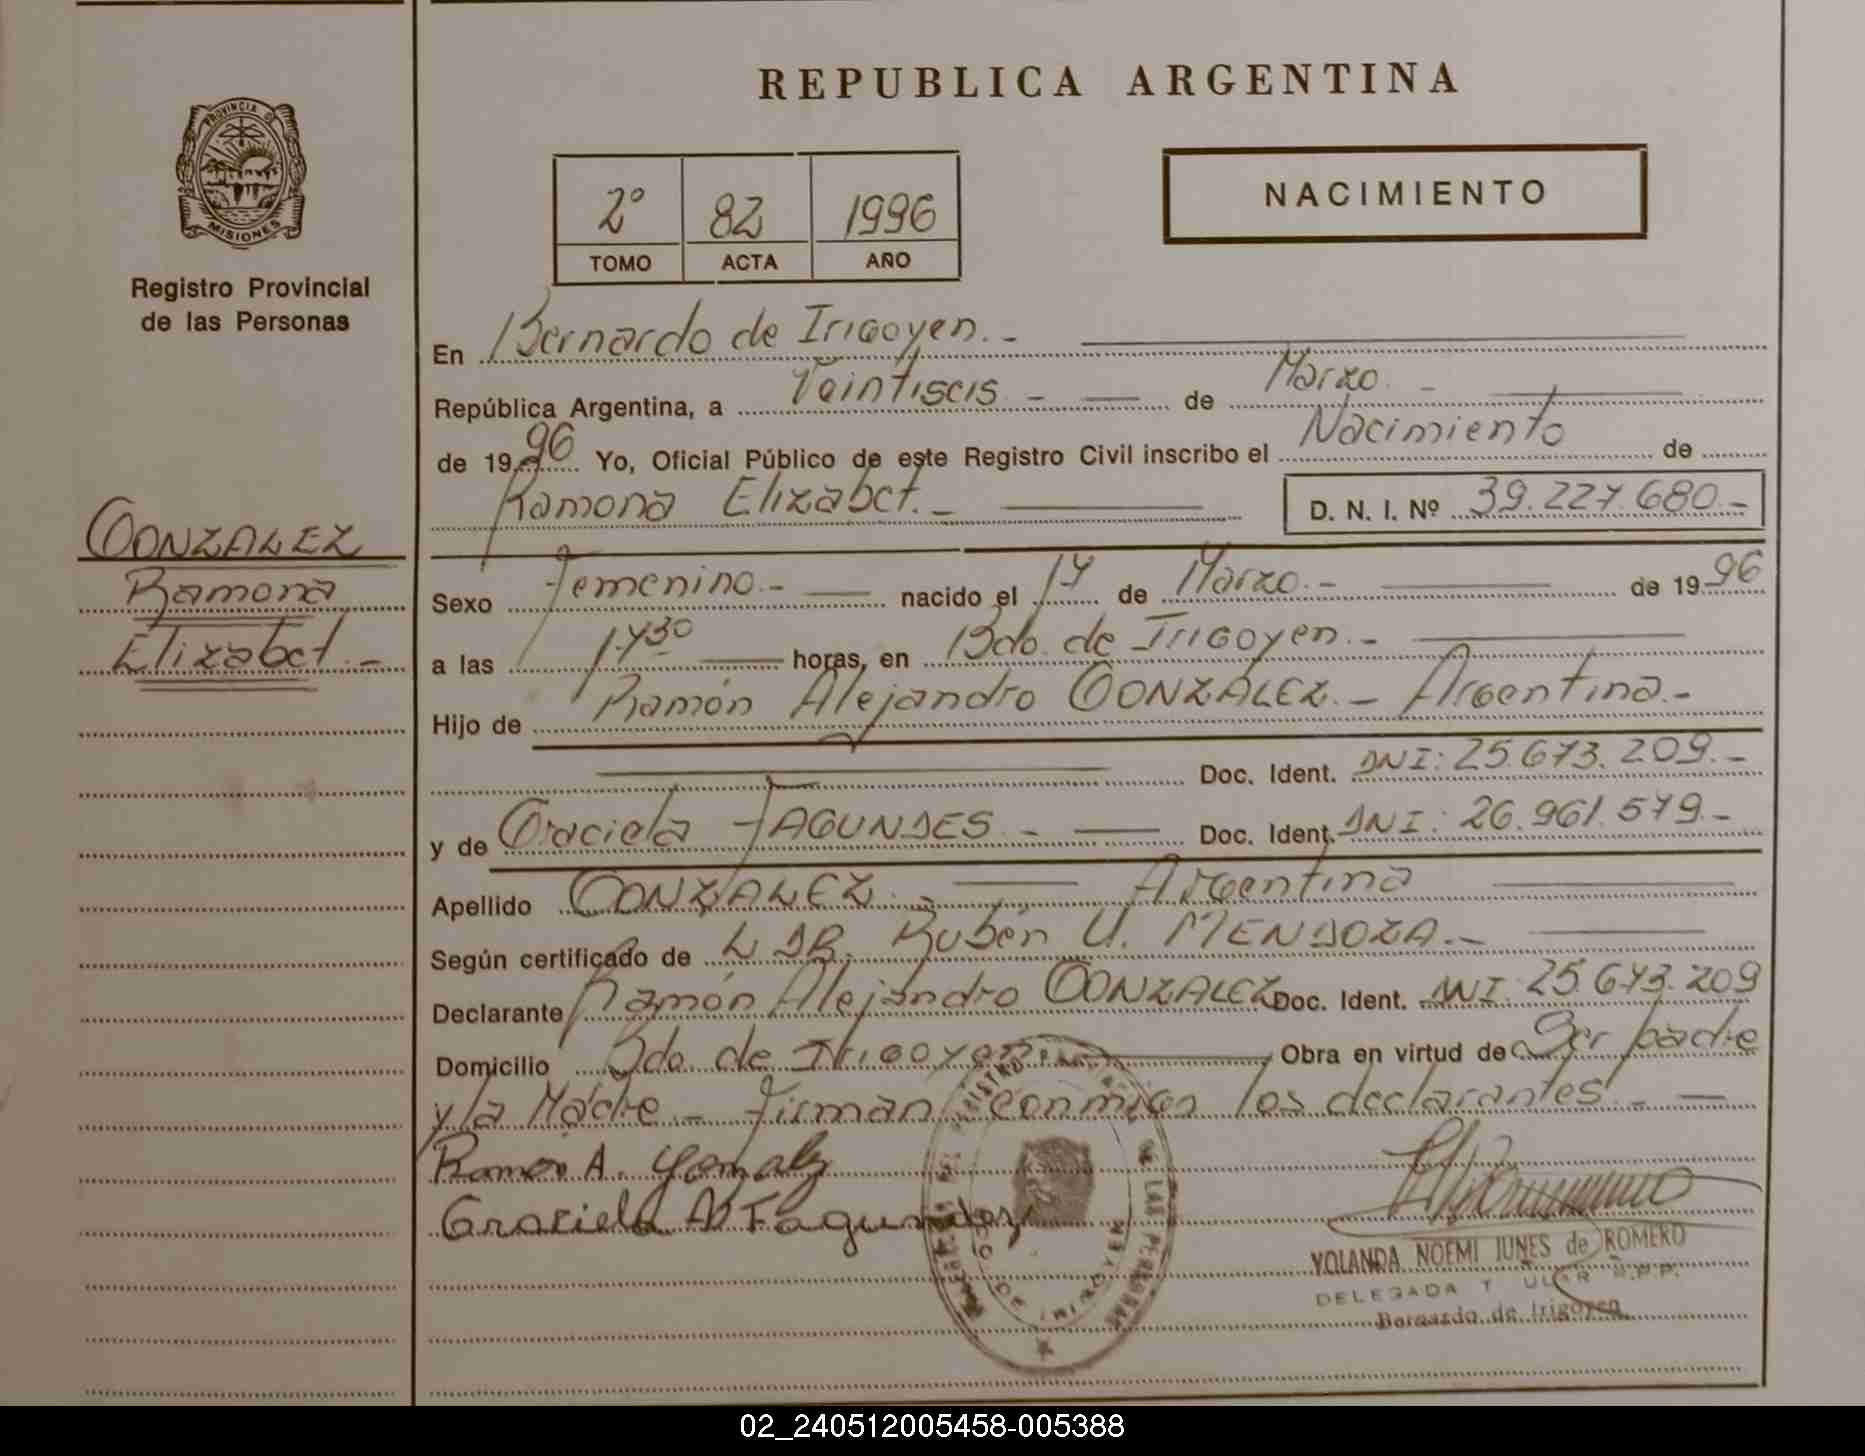 REPUBLICA ARGENTINA
PROVINCIA D
MISIONES
Registro Provincial
de las Personas
2° 82 1996
TOMO ACTA AÑO
NACIMIENTO
En Bernardo de Irigoyen.-
República Argentina, a Veintiseis - de Marzo. -
de 1996 Yo, Oficial Público de este Registro Civil inscribo el Nacimiento de
Ramona Elizabet.- D. N. I. Nº 39.227.680.-
GONZALEZ
Ramona
Elizabet.-
Sexo Femenino.- nacido el 14 de Marzo.- de 1996
a las horas, en Bdo. de Irigoyen.-
Hijo de Ramón Alejandro GONZALEZ.- Argentina.-
Doc. Ident. DNI: 25.673.209.-
y de Graciela FAGUNDES.- Doc. Ident. DNI: 26.961.579.-
Apellido GONZALEZ.- Argentina
Según certificado de L DR. Rubén U. MENDOZA.-
Declarante Ramón Alejandro GONZALEZ Doc. Ident. DNI: 25.673.209
Domicilio Bdo. de Irigoyen Obra en virtud de Ser padre
y la Madre.- Firman conmigo los declarantes.-
Ramon A. Gonzalez
Graciela Fagundez
YOLANDA NOEMI IUÑES de ROMERO
DELEGADA T ULAR R.P.P.
Bernardo de Irigoyen
02_240512005458-005388